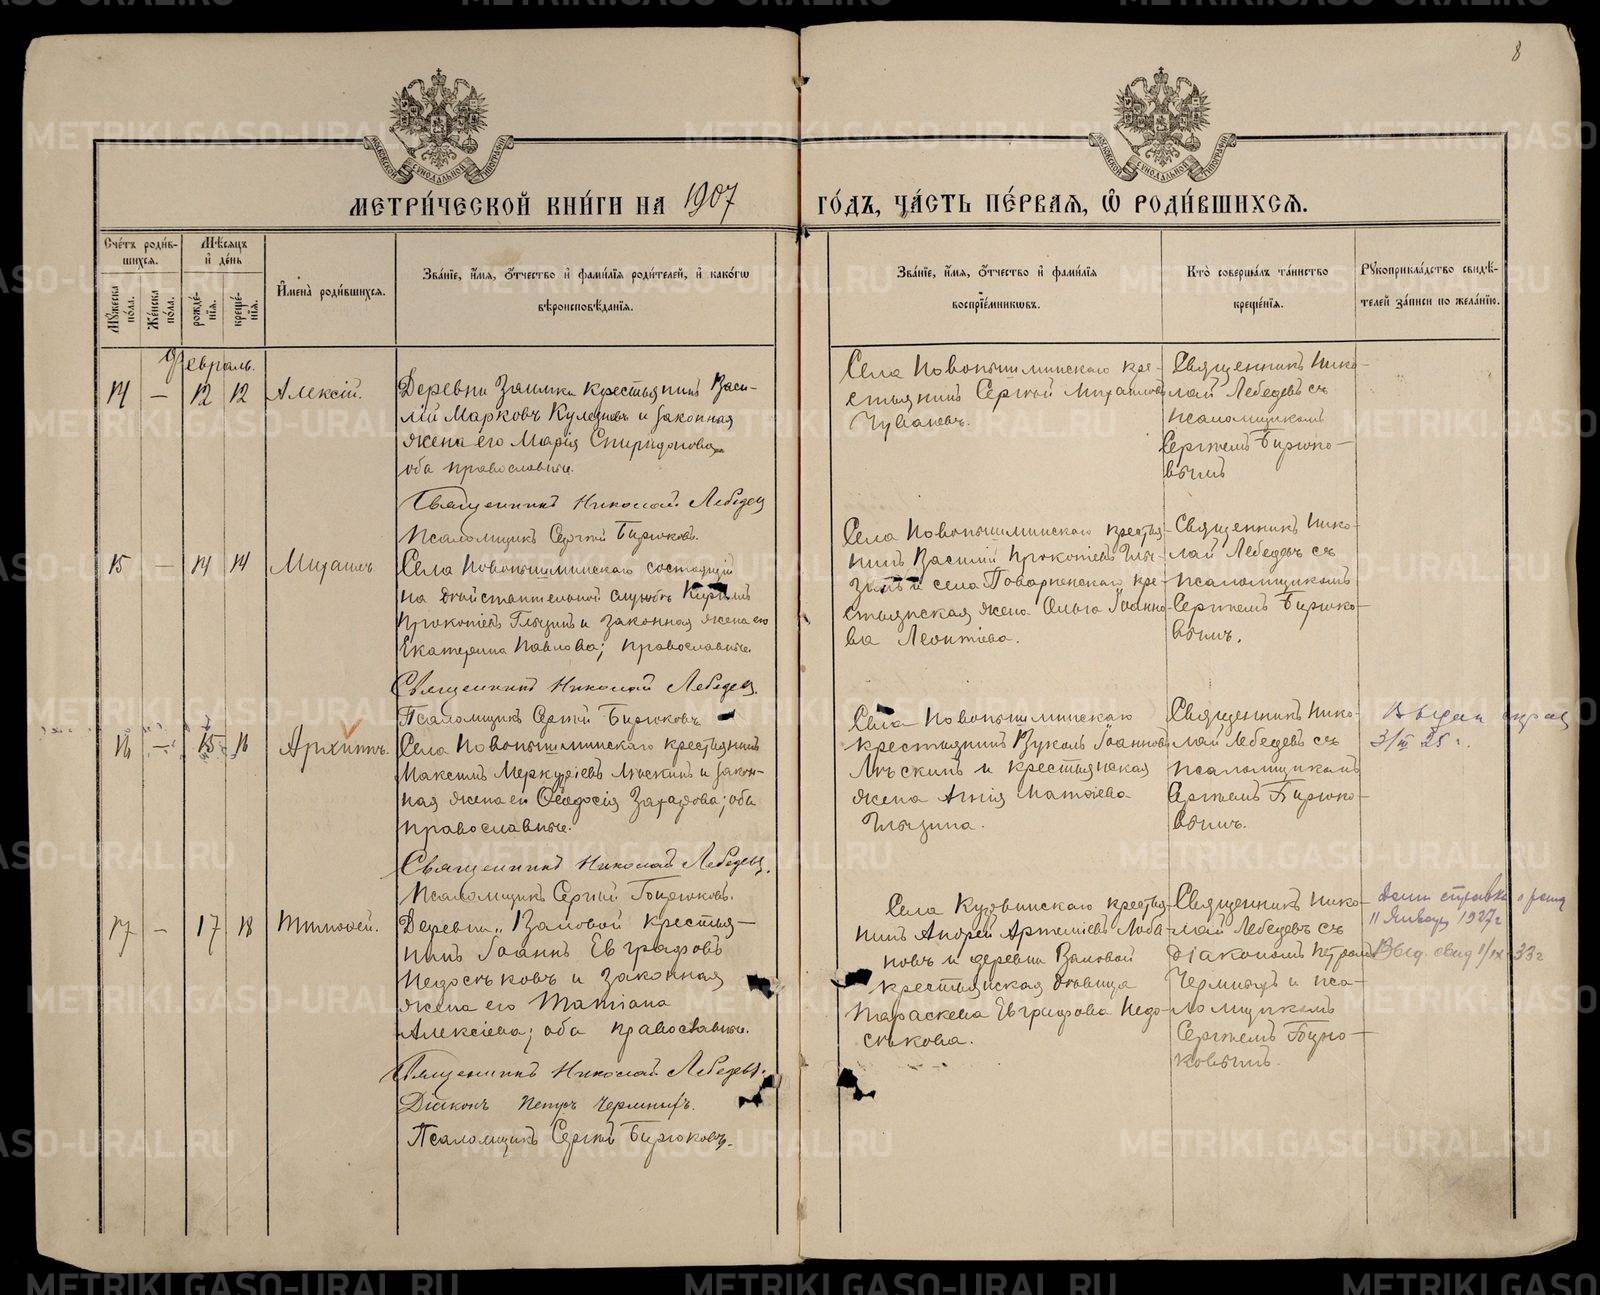 8
МЕТРИ́ЧЕСКОЙ КНИ́ГИ НА 1907
ГО́ДЪ, ЧА́СТЬ ПЕ́РВАѦ, Ѽ РОДИ́ВШИХСѦ.
Сче́тъ роди́в-
шихсѧ.
Мꙋ́жеска по́ла.
Же́нска по́ла.
Мѣ́сѧцъ и де́нь
рожде́-
нїѧ.
креще́-
нїѧ.
Имена̀ роди́вшихсѧ.
Зва́нїе, и́мѧ, о́тчество и фами́лїѧ роди́телей, и како́гѡ
вѣроисповѣ́данїѧ.
Зва́нїе, и́мѧ, о́тчество и фами́лїѧ
воспрїе́мниковъ.
Кто̀ соверша́лъ та́инство
креще́нїѧ.
Рꙋкоприкла́дство свидѣ́-
телей за́писи по жела́нїю.
Февраль.
14 — 12 12 Алексій.
Деревни Заимки крестьянинъ Васи-
лій Марковъ и законная
жена его Марія Спиридонова
оба православные.
Священникъ Николай Лебедевъ
Псаломщикъ Сергій Бирюковъ.
Села Новопышминскаго кре-
стьянинъ Сергій Михаиловъ
Чуваевъ.
Священникъ Нико-
лай Лебедевъ съ
псаломщикомъ
Сергіемъ Бирюко-
вымъ
15 — 14 14
Села Новопышминскаго состоящій
на дѣйствительной службѣ Кириллъ
Прокопіевъ Глызинъ и законная жена его
Екатерина Павлова; православные.
Священникъ Николай Лебедевъ.
Псаломщикъ Сергій Бирюковъ
Села Новопышминскаго крестья-
нинъ Василій Прокопіевъ Глы-
зинъ и села кре-
стьянская жена Ольга Іоанно-
ва Леонтіева.
Священникъ Нико-
лай Лебедевъ съ
псаломщикомъ
Сергіемъ Бирюко-
вымъ.
16 — 15 16 Архиппъ.
Села Новопышминскаго крестьянинъ
Максимъ Меркуріевъ Лѣскинъ и закон-
ная жена его Ѳеодосія оба
православные.
Священникъ Николай Лебедевъ.
Псаломщикъ Сергій Бирюковъ.
Села Новопышминскаго
крестьянинъ Вуколъ Іоанновъ
Лѣскинъ и крестьянская
жена Агнія Матѳіева
Глызина.
Священникъ Нико-
лай Лебедевъ съ
псаломщикомъ
Сергіемъ Бирюко-
вымъ.
Выдан
3/III 25 г.
17 — 17 18 Тимоѳей.
Деревни Валовой крестья-
нинъ Іоаннъ Евграфовъ
Недосѣковъ и законная
жена его Татіана
Алексіева; оба православные.
Священникъ Николай Лебедевъ.
Діаконъ Петръ Чермныхъ.
Псаломщикъ Сергій Бирюковъ.
Села Кузвинскаго крестья-
нинъ Андрей Артеміевъ Лоба-
новъ и деревни Валовой
крестьянская дѣвица
Параскева Евграфова Недо-
сѣкова.
Священникъ Нико-
лай Лебедевъ съ
діакономъ Петромъ
Чермныхъ и пса-
ломщикомъ
Сергіемъ Бирю-
ковымъ.
Дана справка о рожд
11 Января 1927 г
Выд. свид 1/IX 33 г
METRIKI.GASO-URAL.RU